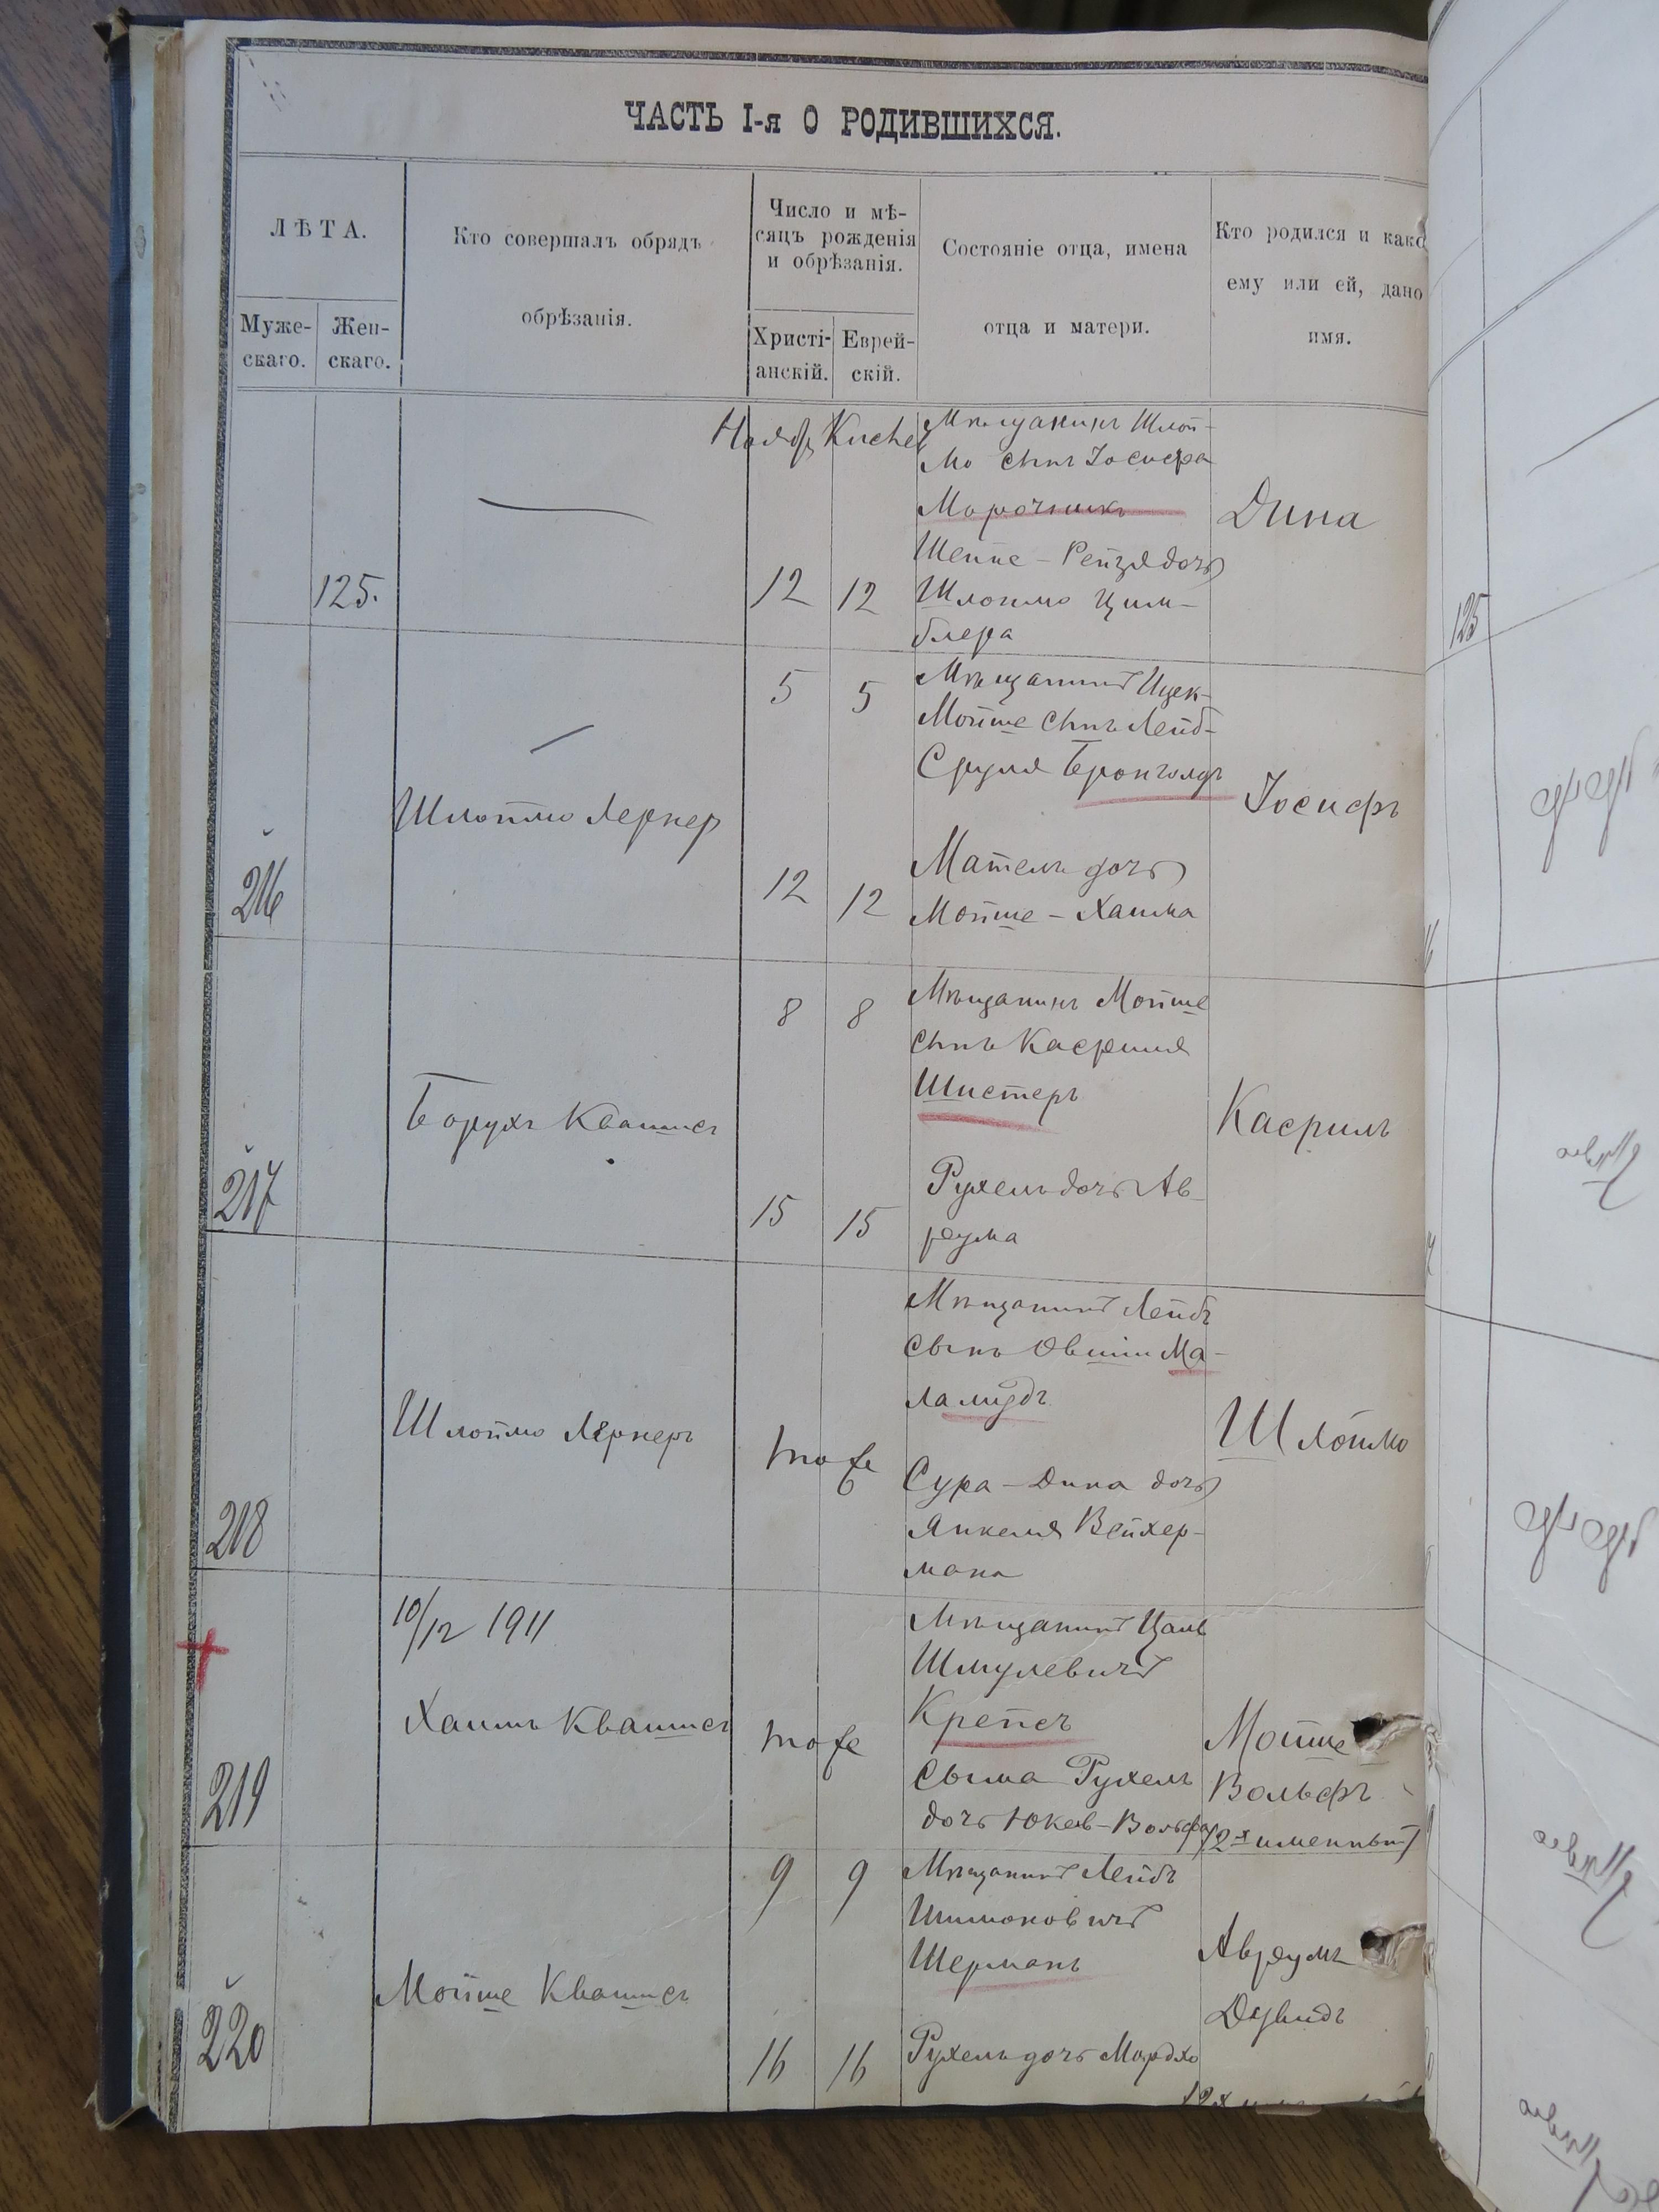 ЧАСТЬ I-я О РОДИВШИХСЯ.
ЛѢТА.
Муже-
скаго.
Жен-
скаго.
Кто совершалъ обрядъ
обрѣзанія.
Число и мѣ-
сяцъ рожденія
и обрѣзанія.
Христі-
анскій.
Еврей-
скій.
Состояніе отца, имена
отца и матери.
Кто родился и како
ему или ей, дано
имя.
125.
12
12
Мѣщанинъ Шлой-
мо сынъ Іосифа
Морочникъ
Шлоймо Цим-
блера
Дина
125
216
Шлоймо Лернер
5
5
12
12
Мѣщанинъ Ицек-
Мойше сынъ Лейб-
Сруля Бронголдъ
Матель дочь
Мойше-Хаима
Іосифъ
217
Борухъ Квашисъ
8
8
15
15
Мѣщанинъ Мойше
сынъ Касриля
Шистеръ
Рухель дочь Ав-
рума
Касриль
218
Шлоймо Лернеръ
тоже
Мѣщанинъ Лейбъ
сынъ Овши Ма-
ламудъ
Сура-Дина дочь
Янкеля Вейхер-
мана
Шлоймо
219
10/12 1911
Хаимъ Квашисъ
тоже
Мѣщанинъ Цаль
Шмулевичъ
Крейсъ
Сыма Рухель
дочь Юкев-Вольфа
Мойше
Вольфъ
220
Мойше Квашисъ
9
9
16
16
Мѣщанинъ Лейбъ
Шимоновичъ
Шерманъ
Рухель дочь Мордхо
Аврумъ
Дувидъ